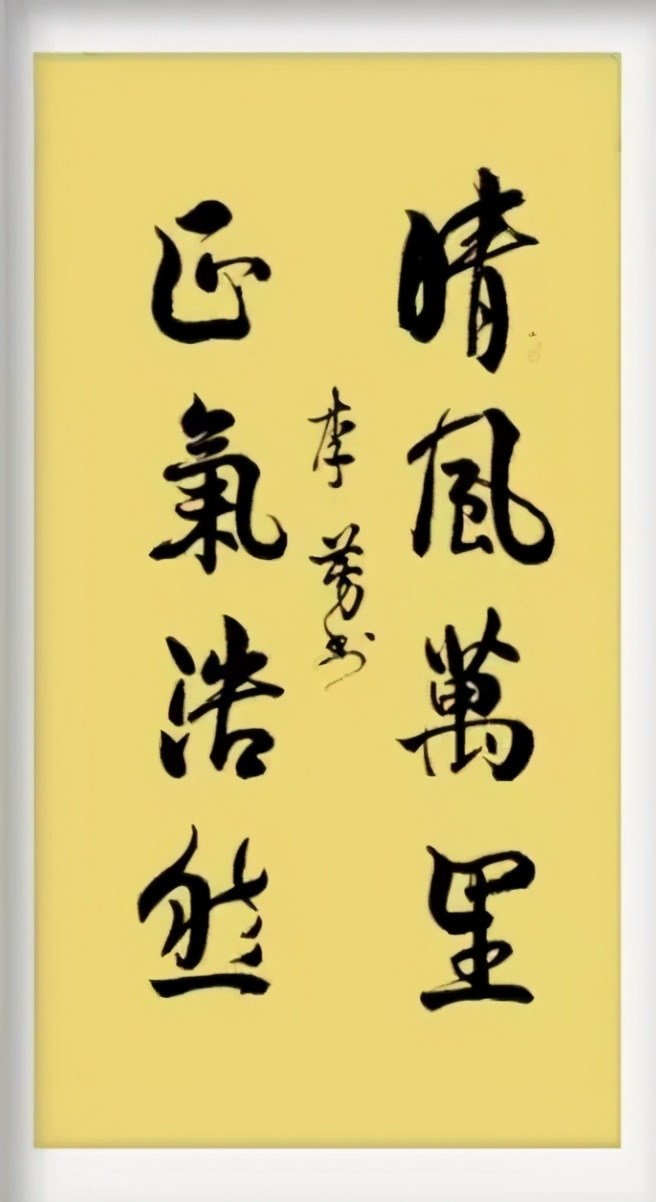 晴風萬里
正氣浩然
李芳书